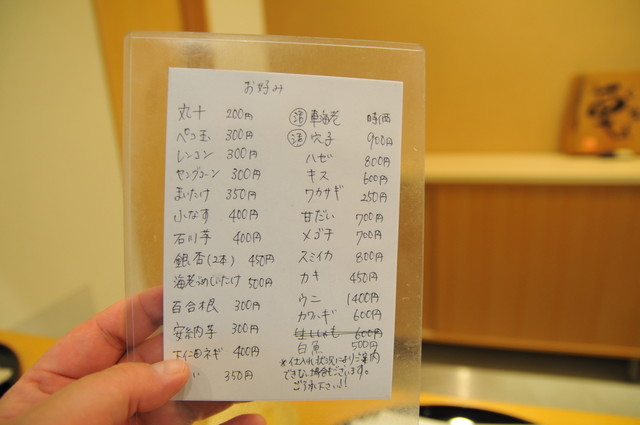 お好み
丸十 200円
ペコ玉 300円
レンコン 300円
ヤングコーン 300円
まいたけ 350円
小なす 400円
石川芋 400円
銀杏(2本) 450円
海老つめしいたけ 500円
百合根 300円
安納芋 300円
下仁田ネギ 400円
い 350円
活 車海老 時価
活 穴子 900円
ハゼ 800円
キス 600円
ワカサギ 250円
甘だい 700円
メゴチ 700円
スミイカ 800円
カキ 450円
ウニ 1400円
カワハギ 600円
ししゃも 600円
白魚 500円
※仕入れ状況によりご案内
できない場合もございます。
ご了承下さい!!